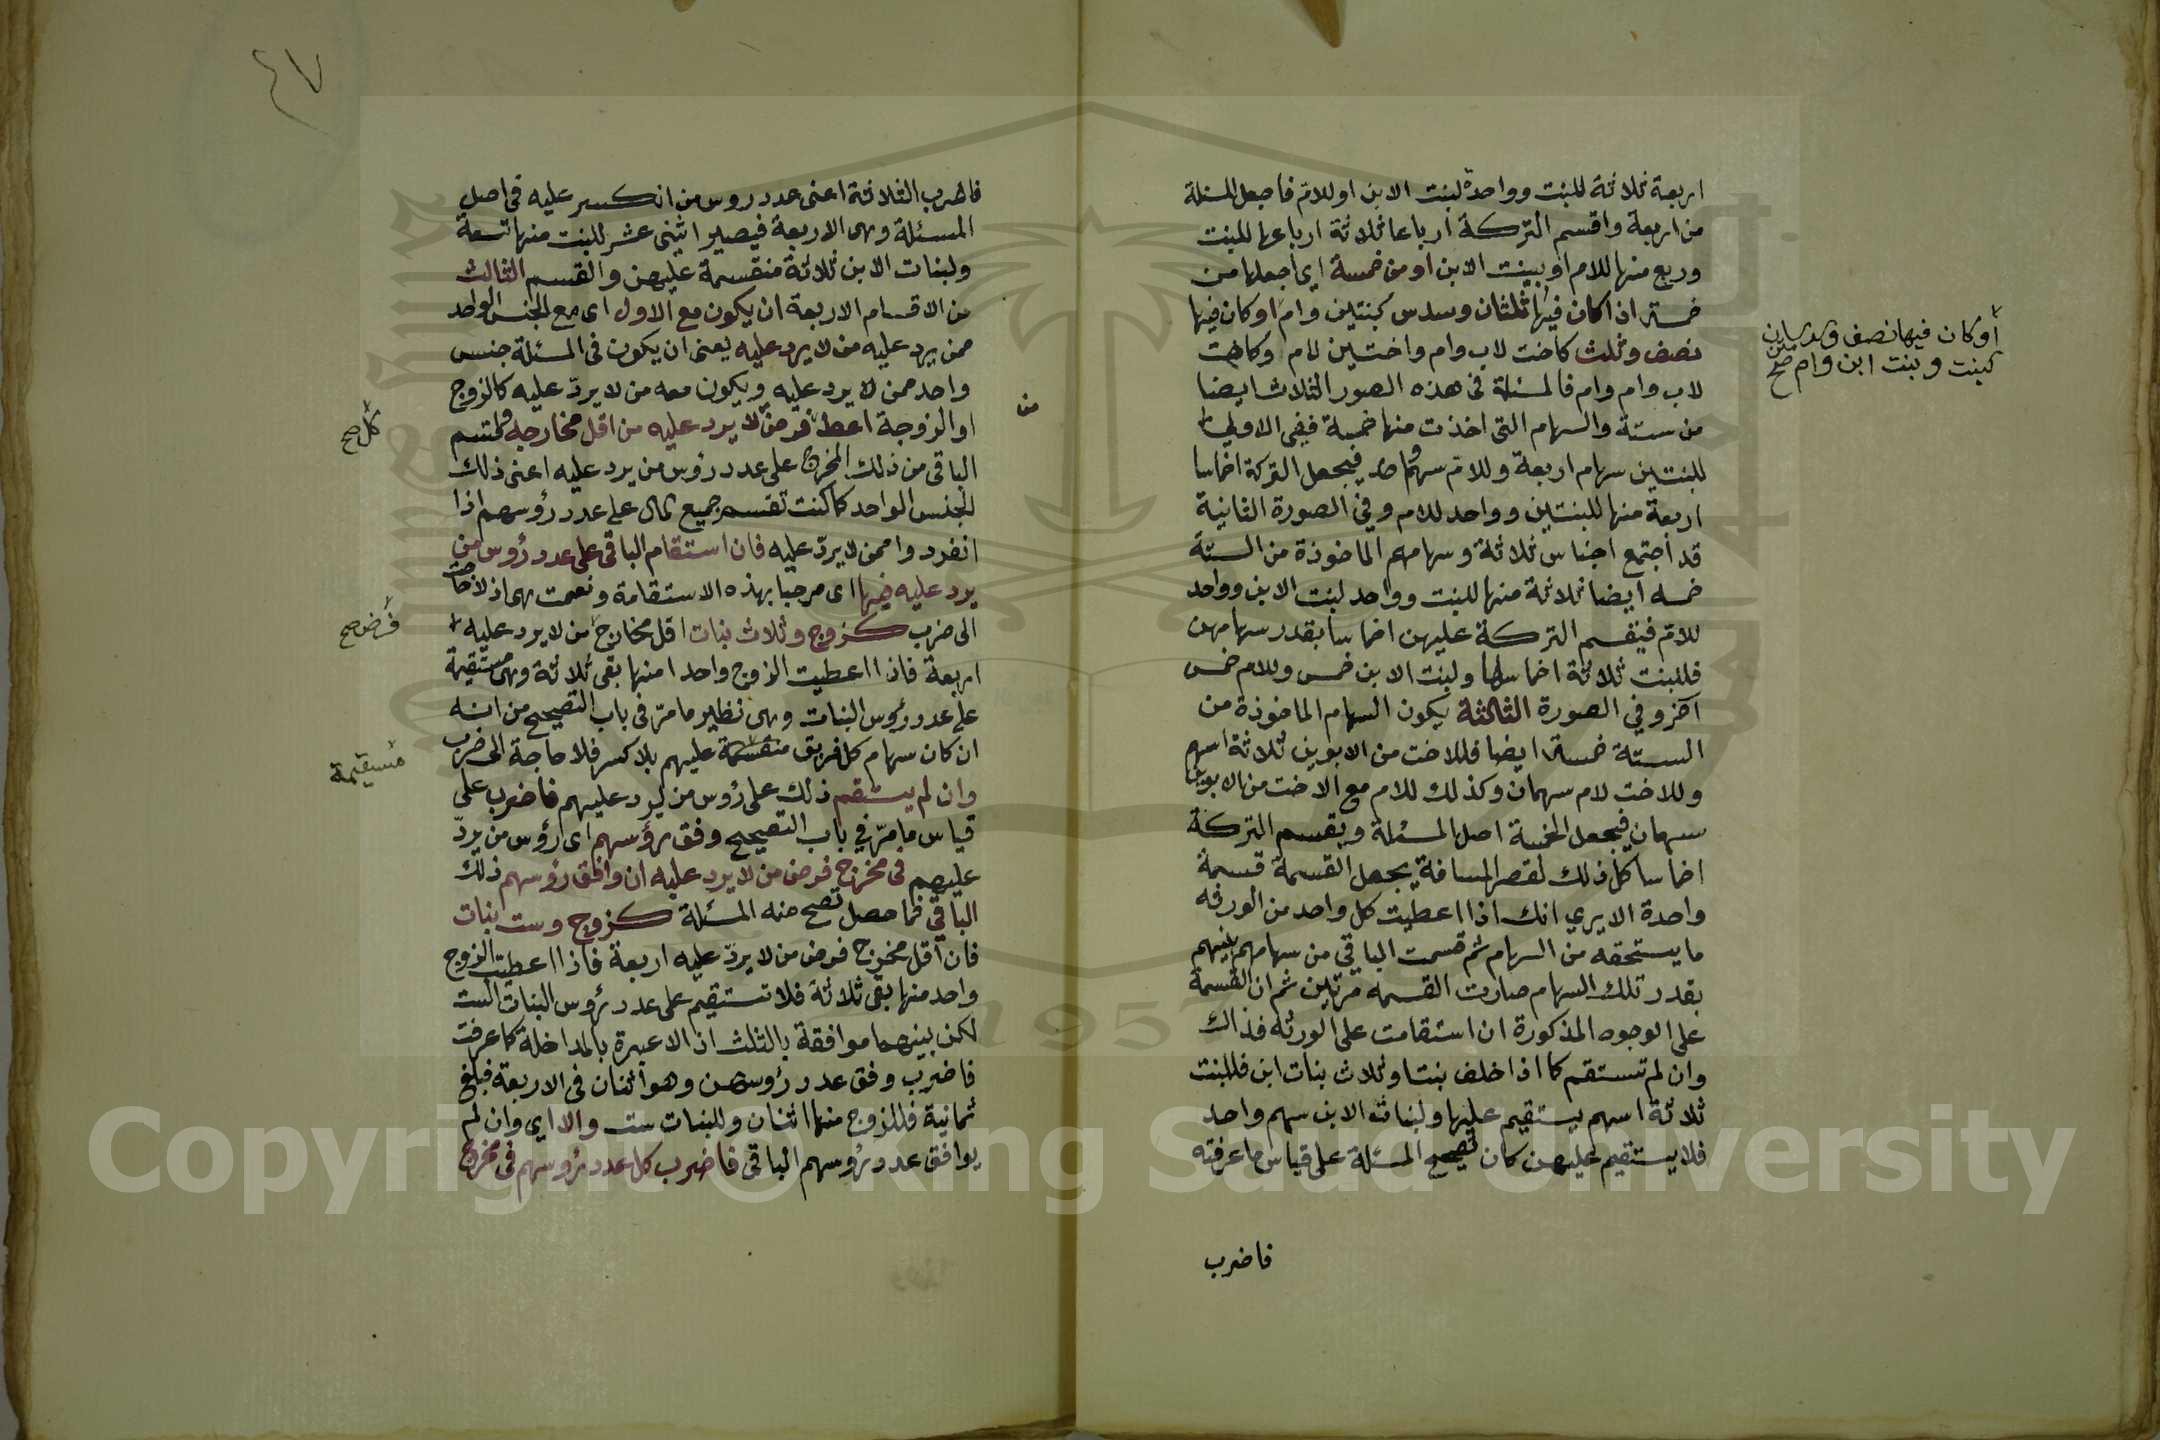 اربعة ثلاثة للبنت وواحدة لبنت الابن او للام فاجعل المسئلة
من اربعة واقسم التركة ارباعا ثلاثة ارباعها للبنت
وربع منها للام او لبنت الابن او من خمسة اى اجعلها من
خمسة اذا كان فيها ثلثان وسدس كبنتين وام او كان فيها
نصف وثلث كاخت لاب وام واختين لام او كاخت
لاب وام وام فالمسئلة فى هذه الصور الثلاث ايضا
من ستة والسهام التى اخذت منها خمسة ففى الاولى
للبنتين سهام اربعة وللام سهم واحد فيجعل التركة اخماسا
اربعة منها للبنتين وواحد للام وفي الصورة الثانية
قد اجتمع اجناس ثلاثة وسهامهم الماخوذة من الستة
خمسه ايضا ثلاثة منها للبنت وواحد لبنت الابن وواحد
للام فيقسم التركة عليهن اخماسا بقدر سهامهن
فللبنت ثلاثة اخماسها ولبنت الابن خمس وللام خمس
آخر وفي الصورة الثالثة يكون السهام الماخوذة من
الستة خمسة ايضا فللاخت من الابوين ثلاثة اسهم
وللاخت لام سهمان وكذلك للام مع الاخت من الابوين
سهمان فيجعل الخمسة اصل المسئلة ويقسم التركة
اخماسا كل ذلك لقصر المسافة بجعل القسمة قسمة
واحدة الا يري انك اذا اعطيت كل واحد من الورثه
ما يستحقه من السهام ثم قسمت الباقي من سهامهم بينهم
بقدر تلك السهام صارت القسمه مرتين ثم ان القسمة
على الوجوه المذكورة ان استقامت على الورثه فذاك
وان لم تستقم كما اذا خلف بنتا وثلاث بنات ابن فللبنت
ثلاثة اسهم يستقيم عليها ولبنات الابن سهم واحد
فلا يستقيم عليهن كان تصحيح المسئلة على قياس ما عرفته
فاضرب
أو كان فيها نصف وسدسان
كبنت وبنت ابن وام صح
٤٧
فاضرب الثلاثة اعنى عدد روس من انكسر عليه فى اصل
المسئلة وهى الاربعة فيصير اثنى عشر للبنت منها تسعة
ولبنات الابن ثلاثة منقسمة عليهن والقسم الثالث
من الاقسام الاربعة ان يكون مع الاول اى مع الجنس الواحد
ممن يرد عليه من لا يرد عليه يعنى ان يكون فى المسئلة جنس
واحد ممن لا يرد عليه ويكون معه من لا يردّ عليه كالزوج
او الزوجة اعط فرض من لا يرد عليه من اقل مخارجه
الباقى من ذلك المخرج على عدد رؤس من يرد عليه اعنى ذلك
الجنس الواحد كما كنت تقسم جميع المال على عدد رؤسهم اذا
انفرد وا ممن لا يردّ عليه فان استقام الباقى على عدد رؤس من
يرد عليه فبها اى مرحبا بهذه الاستقامة ونعمت هى اذ لا حاجة
الى ضرب كزوج وثلاث بنات اقل مخارج من لا يرد عليه
اربعة فاذا اعطيت الزوج واحدا منها بقى ثلاثة وهى مستقيمة
على عدد رؤس البنات وهى نظير ما مرّ فى باب التصحيح من انه
ان كان سهام كل فريق منقسمة عليهم بلا كسر فلا حاجة الى ضرب
وان لم يستقم ذلك على رؤس من يرد عليهم فاضرب على
قياس ما مرّ في باب التصحيح وفق رؤسهم اى رؤس من يردّ
عليهم فى مخرج فرض من لا يرد عليه ان وافق رؤسهم ذلك
الباقي فما حصل تصح منه المسئلة كزوج وست بنات
فان اقل مخرج فرض من لا يردّ عليه اربعة فاذا اعطيت الزوج
واحد منها بقى ثلاثة فلا تستقيم على عدد رؤس البنات الست
لكن بينهما موافقة بالثلث اذ لا عبرة بالمداخلة كما عرفت
فاضرب وفق عدد رؤسهن وهو اثنان فى الاربعة فبلغ
ثمانية فللزوج منها اثنان وللبنات ست والا اي وان لم
يوافق عدد رؤسهم الباقى فاضرب كل عدد رؤسهم فى مخرج
من
كل صح
فرض صح
مستقيمة
Copyright © King Saud University
1957